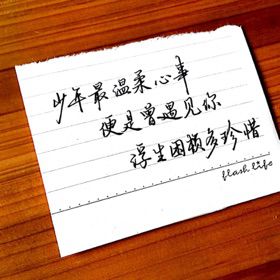 少年最温柔心事
便是曾遇见你
浮生困顿多珍惜
flash life